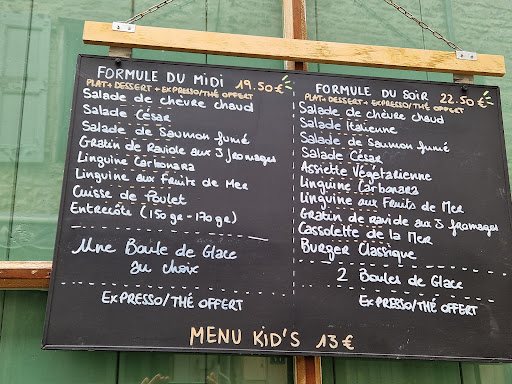 FORMULE DU MIDI 19.50€
PLAT + DESSERT + EXPRESSO/THÉ OFFERT
Salade de chèvre chaud
Salade César
Salade de Saumon fumé
Gratin de Raviole aux 3 fromages
Linguine Carbonara
Linguine aux Fruits de Mer
Cuisse de Poulet
Entrecôte (150gr-170gr)
Une Boule de Glace
au choix
EXPRESSO/THÉ OFFERT
FORMULE DU SOIR 22.50€
PLAT + DESSERT + EXPRESSO/THÉ OFFERT
Salade de chèvre chaud
Salade Italienne
Salade de Saumon fumé
Salade César
Assiette Végétarienne
Linguine Carbonara
Linguine aux Fruits de Mer
Gratin de Raviole aux 3 fromages
Cassolette de la Mer
Burger Classique
2 Boules de Glace
EXPRESSO/THÉ OFFERT
MENU KID'S 13€